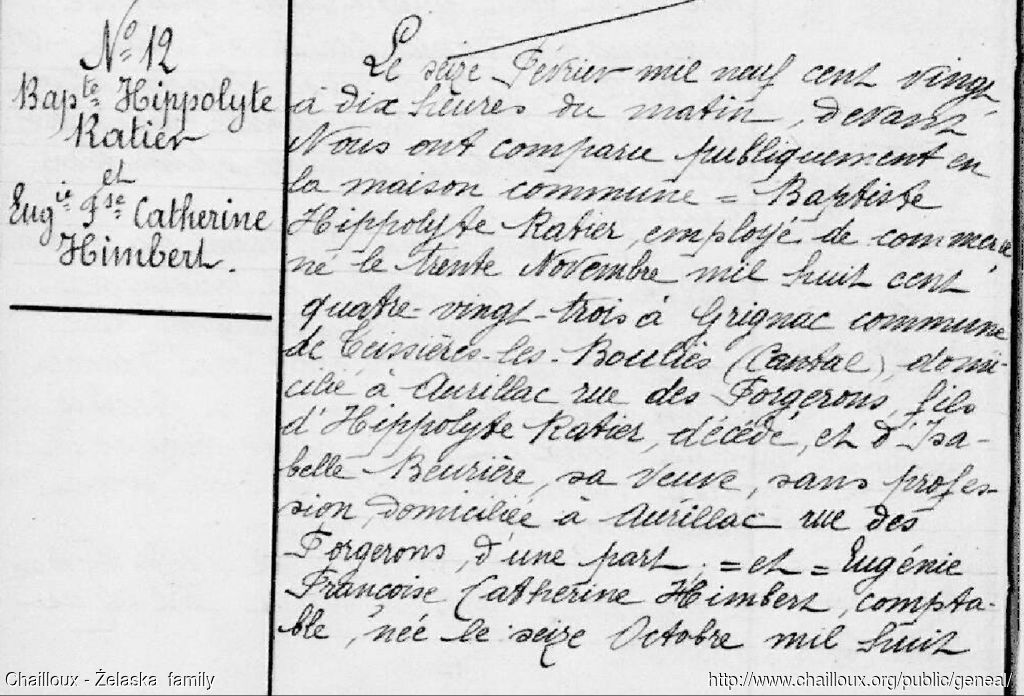 N° 12
Bapte Hippolyte
Ratier
et
Eugie Fse Catherine
Himbert.
Le seize Février mil neuf cent vingt
à dix heures du matin, devant
Nous ont comparu publiquement en
la maison commune = Baptiste
Hippolyte Ratier, employé de commerce
né le trente Novembre mil huit cent
quatre-vingt-trois à Grignac commune
de Teissières-les-Bouliès (Cantal), domi-
cilié à Aurillac rue des Forgerons, fils
d'Hippolyte Ratier, décédé, et d'Isa-
belle Beurière, sa veuve, sans profes-
sion, domiciliée à Aurillac rue des
Forgerons, d'une part, = et = Eugénie
Françoise Catherine Himbert, compta-
ble, née le seize Octobre mil huit
Chailloux - Żelaska family
http://www.chailloux.org/public/geneal/